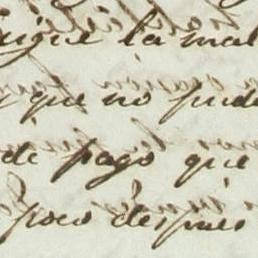 la mal
que no pude
de pago que
poco despues